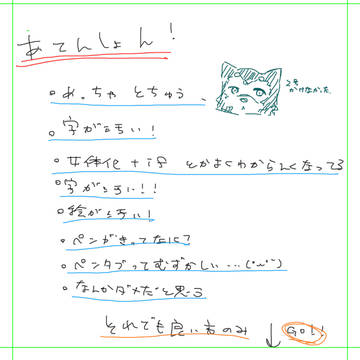 あてんしょん!
。めっちゃ とちゅう、
2号
かけなかった
。字が汚い!
。女体化 + if とかよくわからんくなってる
。字が汚い!!
。絵が汚い!
。ペンがきってなに?
。ペンタブってむずかしい…(˙ω˙)
。なんかダメだと思う
それでも良い方のみ ↓ GO!!